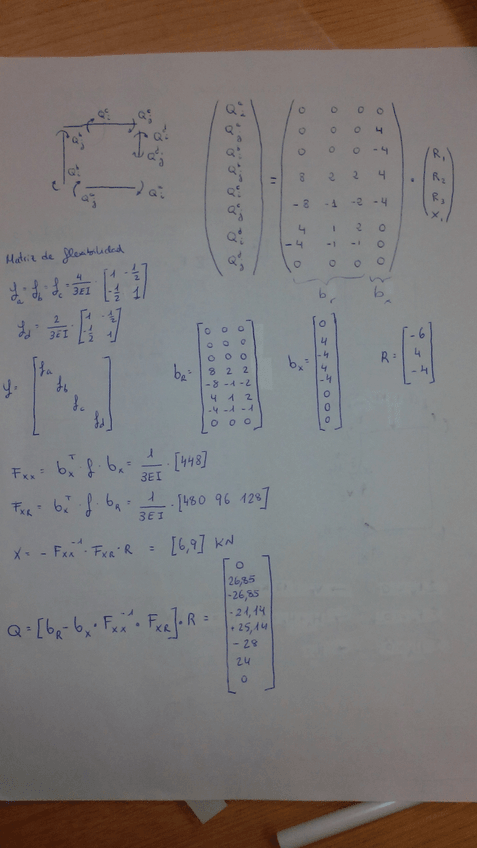 Q_i^c
Q_j^c
Q_i^d
Q_j^b
Q_j^d
Q_i^b
Q_j^a
Q_i^a
( Q_i^a Q_j^a Q_i^b Q_j^b Q_i^c Q_j^c Q_i^d Q_j^d ) = ( 0 0 0 0
0 0 0 4
0 0 0 -4
8 2 2 4
-8 -1 -2 -4
4 1 2 0
-4 -1 -1 0
0 0 0 0 ) · ( R₁ R₂ R₃ X₁ )
b_r b_x
Matriz de flexibilidad
f_a = f_b = f_c = 4/3EI [ 1 -1/2
-1/2 1 ]
f_d = 2/3EI · [ 1 -1/2
-1/2 1 ]
f = [ f_a
f_b
f_c
f_d ]
b_R = [ 0 0 0
0 0 0
0 0 0
8 2 2
-8 -1 -2
4 1 2
-4 -1 -1
0 0 0 ]
b_x = [ 0
4
-4
4
-4
0
0
0 ]
R = [ -6
4
-4 ]
F_xx = b_x^T · f · b_x = 1/3EI · [448]
F_xR = b_x^T · f · b_R = 1/3EI · [480 96 128]
X = - F_xx^-1 · F_xR · R = [6,9] KN
Q = [b_R - b_x · F_xx^-1 · F_xR] · R = [ 0
26,85
-26,85
-21,14
+25,14
-28
24
0 ]